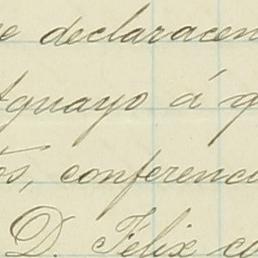 se declaracen
Aguayo á q
os, conferenci
D. Félix co